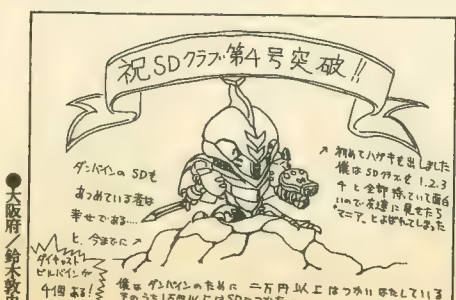 祝SDクラブ第4号突破!!
ダンバインの SDも
あつめている者は
幸せである…
と、今までに
ダイキャスト
ビルバインが
4個ある!
初めてハガキを出しました
僕はSDクラブを1.2.3
4と全部持っていて面白
いので友達に見せたら
マニア。とよばれてしまった
僕はダンバインのために 二万円以上はつかいはたしている
そのうち1万円以上はSDにつかった
●大阪府/鈴木敦史